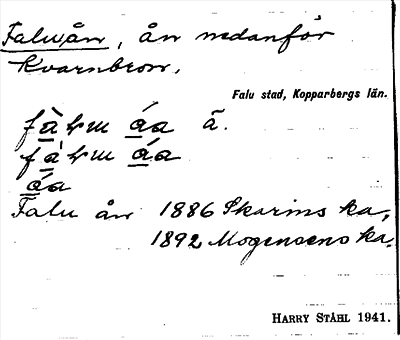 Faluån, ån nedanför
Kvarnbron.
Falu stad, Kopparbergs län.
åa ã.
åa
åa
Falu ån 1886 Skarins ka,
1892 Mogensens ka.
HARRY STÅHL 1941.